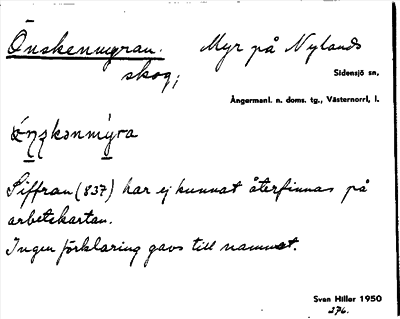 Önskenmyran. Myr på Nylands
skog;
Sidensjö sn,
Ångermanl. n. doms. tg., Västernorrl, l.
Siffran (837) har ej kunnat återfinnas på
arbetskartan.
Ingen förklaring gavs till namnet.
Sven Hiller 1950
276.